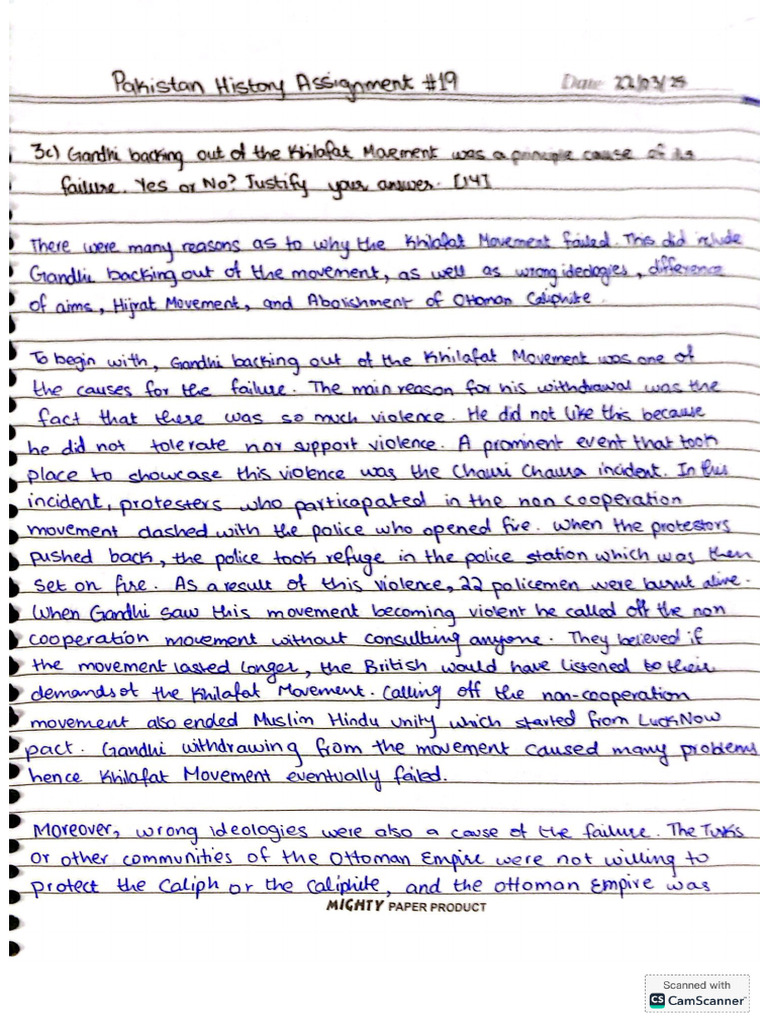 Pakistan History Assignment #19 Date 22/03/25
3c) Gandhi backing out of the Khilafat Movement was a principle cause of its
failure. Yes or No? Justify your answer. [14]
There were many reasons as to why the Khilafat Movement failed. This did include
Gandhi backing out of the movement, as well as wrong ideologies, difference
of aims, Hijrat Movement, and Abolishment of Ottoman Caliphite.
To begin with, Gandhi backing out of the Khilafat Movement was one of
the causes for the failure. The main reason for his withdrawal was the
fact that there was so much violence. He did not like this because
he did not tolerate nor support violence. A prominent event that took
place to showcase this violence was the Chauri Chaura incident. In this
incident, protesters who particapated in the non cooperation
movement clashed with the police who opened fire. When the protestors
pushed back, the police took refuge in the police station which was then
set on fire. As a result of this violence, 22 policemen were burnt alive.
When Gandhi saw this movement becoming violent he called off the non
cooperation movement without consulting anyone. They believed if
the movement lasted longer, the British would have listened to their
demands of the Khilafat Movement. Calling off the non-cooperation
movement also ended Muslim Hindu unity which started from LuckNow
pact. Gandhi withdrawing from the movement caused many problems
hence Khilafat Movement eventually failed.
Moreover, wrong ideologies were also a cause of the failure. The Turks
or other communities of the Ottoman Empire were not willing to
protect the Caliph or the Caliphite, and the Ottoman Empire was
MIGHTY PAPER PRODUCT
Scanned with
CS CamScanner